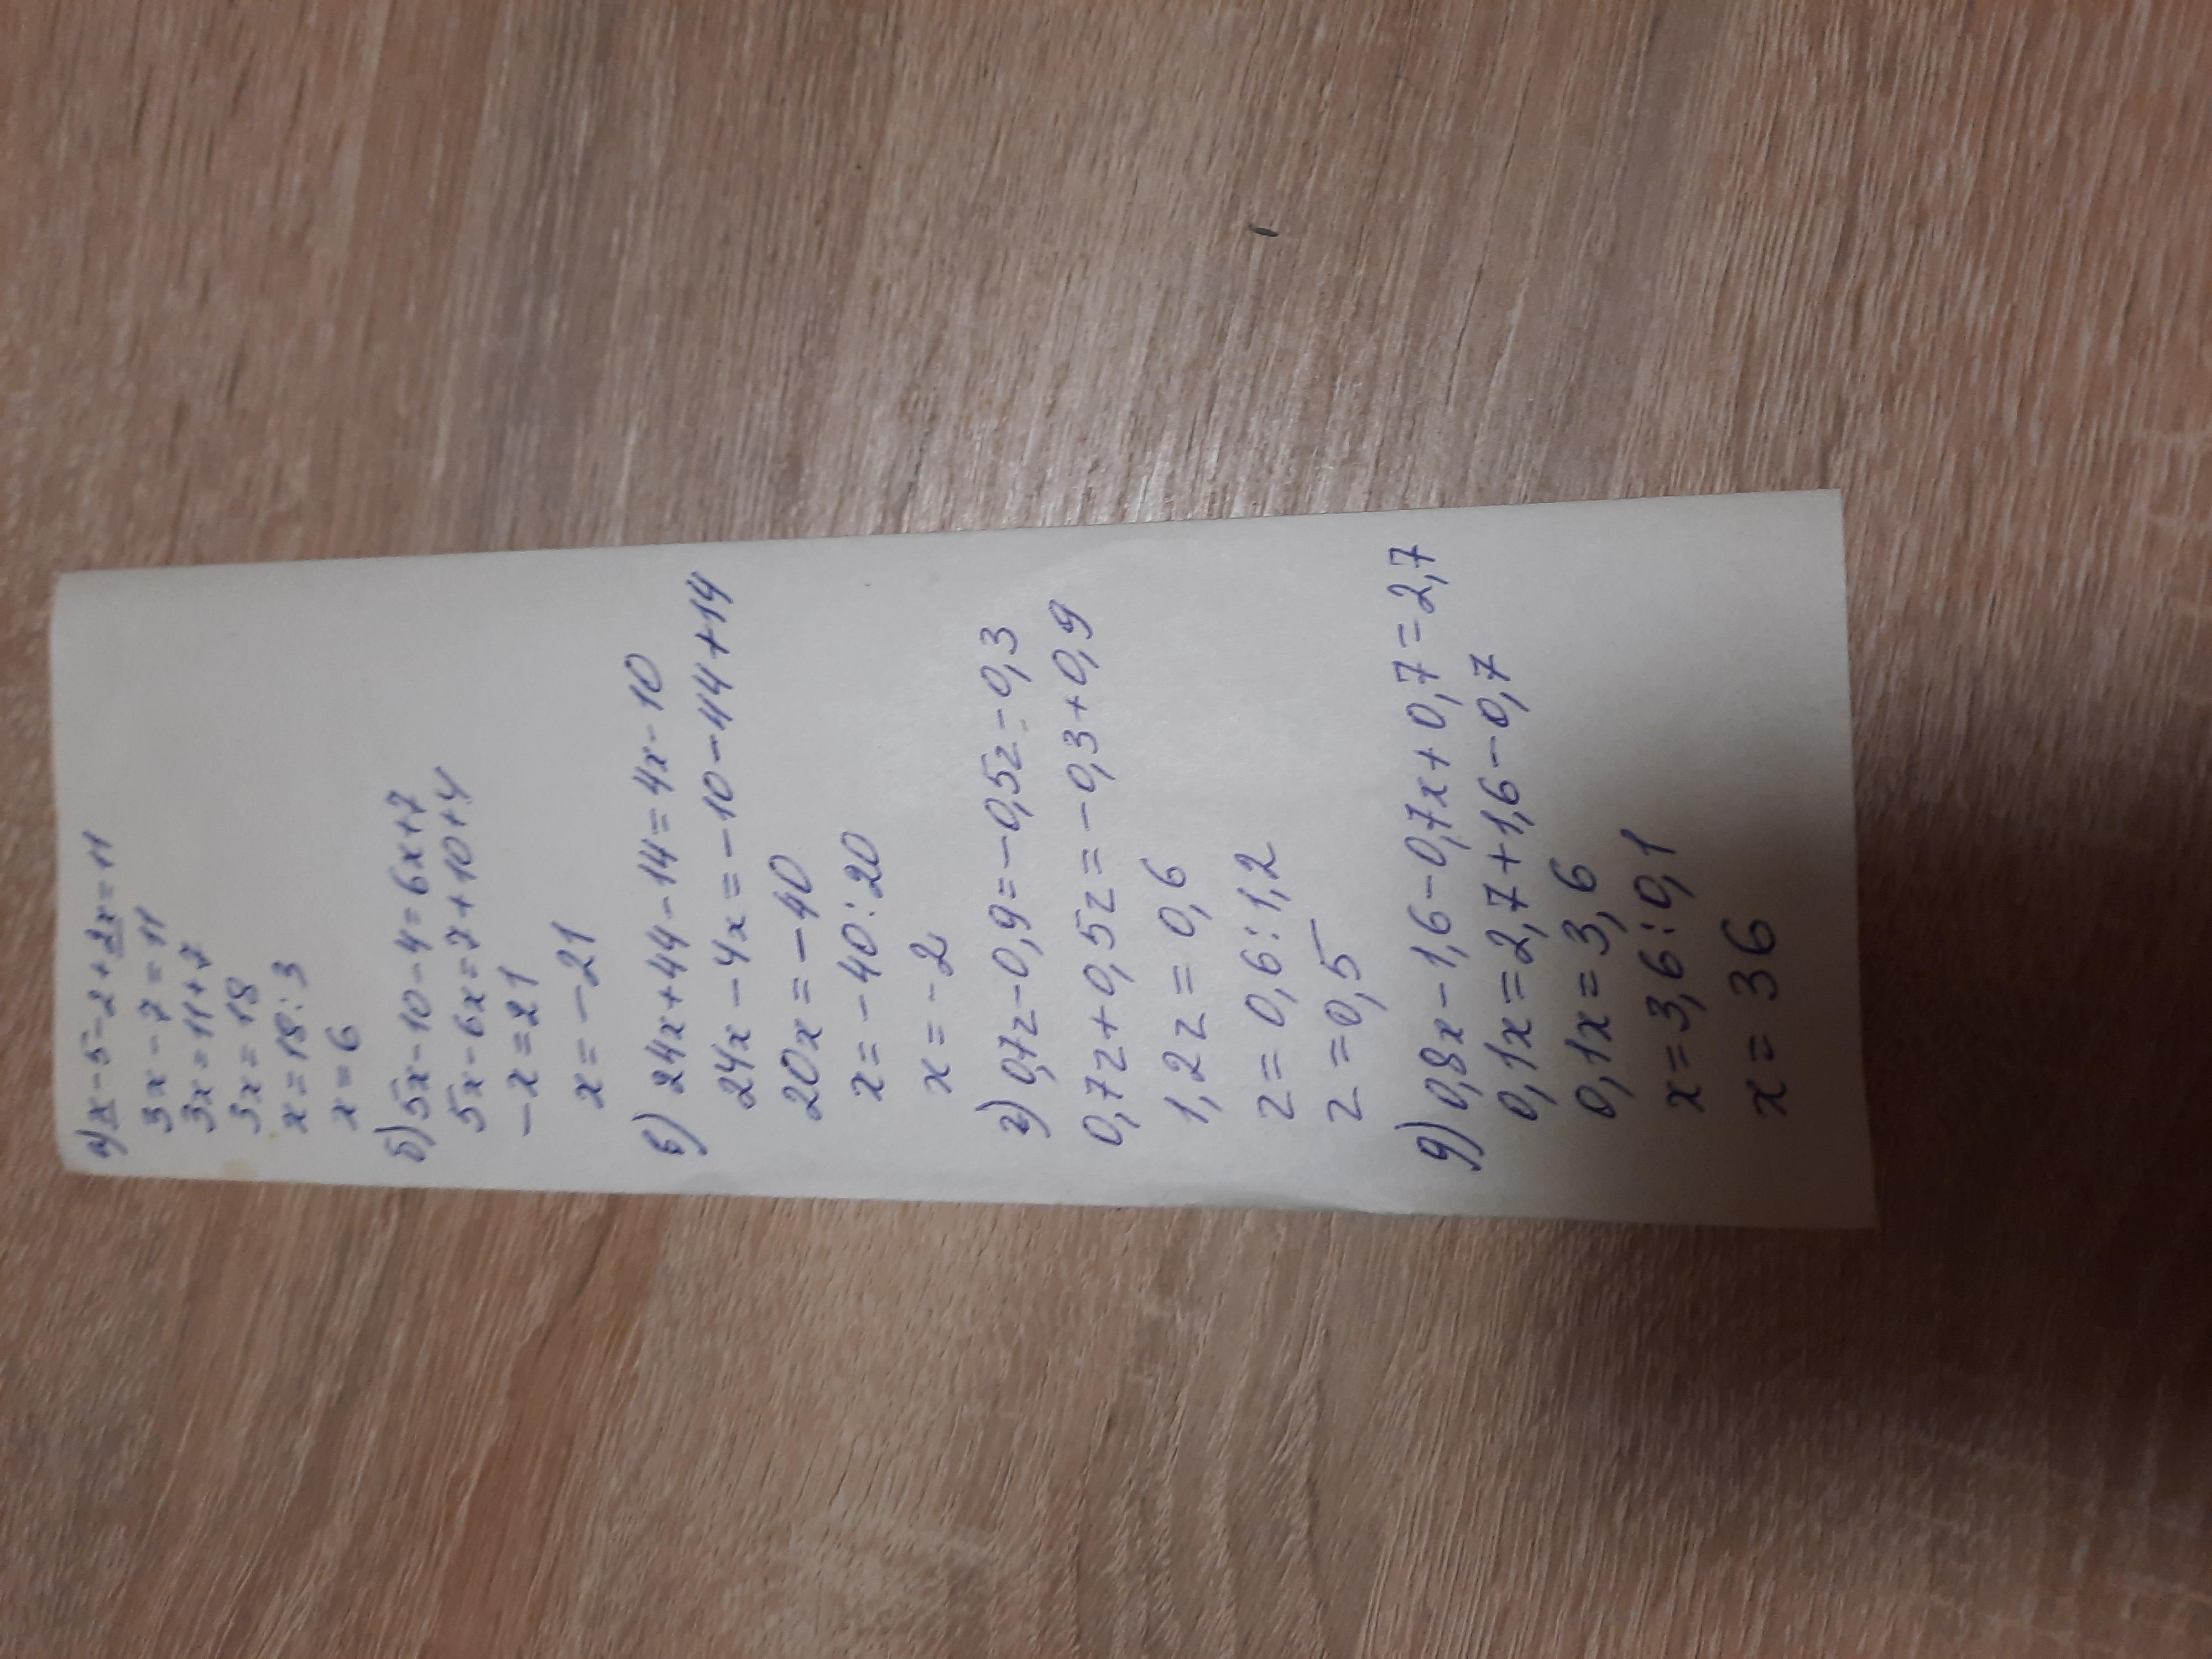 а) x - 5 - 2 + 2x = 11
3x - 7 = 11
3x = 11 + 7
3x = 18
x = 18 : 3
x = 6
б) 5x - 10 - 4 = 6x + 7
5x - 6x = 7 + 10 + 4
-x = 21
x = -21
в) 24x + 44 - 14 = 4x - 10
24x - 4x = -10 - 44 + 14
20x = -40
x = -40 : 20
x = -2
г) 0,7z - 0,9 = -0,5z - 0,3
0,7z + 0,5z = -0,3 + 0,9
1,2z = 0,6
z = 0,6 : 1,2
z = 0,5
д) 0,8x - 1,6 - 0,7x + 0,7 = 2,7
0,1x = 2,7 + 1,6 - 0,7
0,1x = 3,6
x = 3,6 : 0,1
x = 36